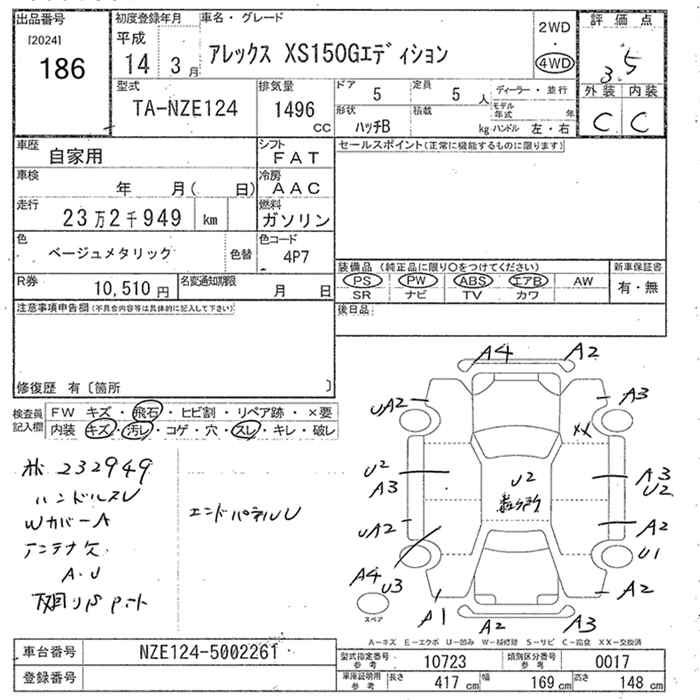 出品番号
[2024]
186
初度登録年月
平成
14 3月
車名・グレード
アレックス XS150Gエディション
2WD
4WD
評価点
3.5
外装 内装
C C
型式
TA-NZE124
排気量
1496 CC
ドア 5
定員 5 人
ディーラー・並行
モデル年式 年
形状 ハッチB
積載 kg
ハンドル 左・右
車歴 自家用
シフト FAT
セールスポイント(正常に機能するものに限ります)
車検 年 月( 日)
冷房 AAC
走行 23万2千949 km
燃料 ガソリン
色 ベージュメタリック 色替
色コード 4P7
装備品 (純正品に限り○をつけてください)
新車保証書
PS PW ABS エアB AW
有・無
SR ナビ TV カワ
R券 10,510円
名変通知期限 月 日
後日品
注意事項申告欄(不具合内容等は具体的に記入して下さい)
修復歴 有〔箇所 〕
検査員記入欄
FW キズ・飛石・ヒビ割・リペア跡・×要
内装 キズ・汚レ・コゲ・穴・スレ・キレ・破レ
232949
ハンドルスレ
Wカバ-A
アンテナ欠
A.U
下回りS
エンドパネルU
A4 A2
UA2 A3
XX
U2 A3
U2
A3 U2
UA2 A2
U1
A4 U3
A2
A1 A2 A3
スペア
A-キズ E-エクボ U-凹み W-補修跡 S-サビ C-腐食 XX-交換済
車台番号 NZE124-5002261
登録番号
型式指定番号 参考 10723
類別区分番号 参考 0017
車庫証明用 参考 長さ 417 cm 幅 169 cm 高さ 148 cm